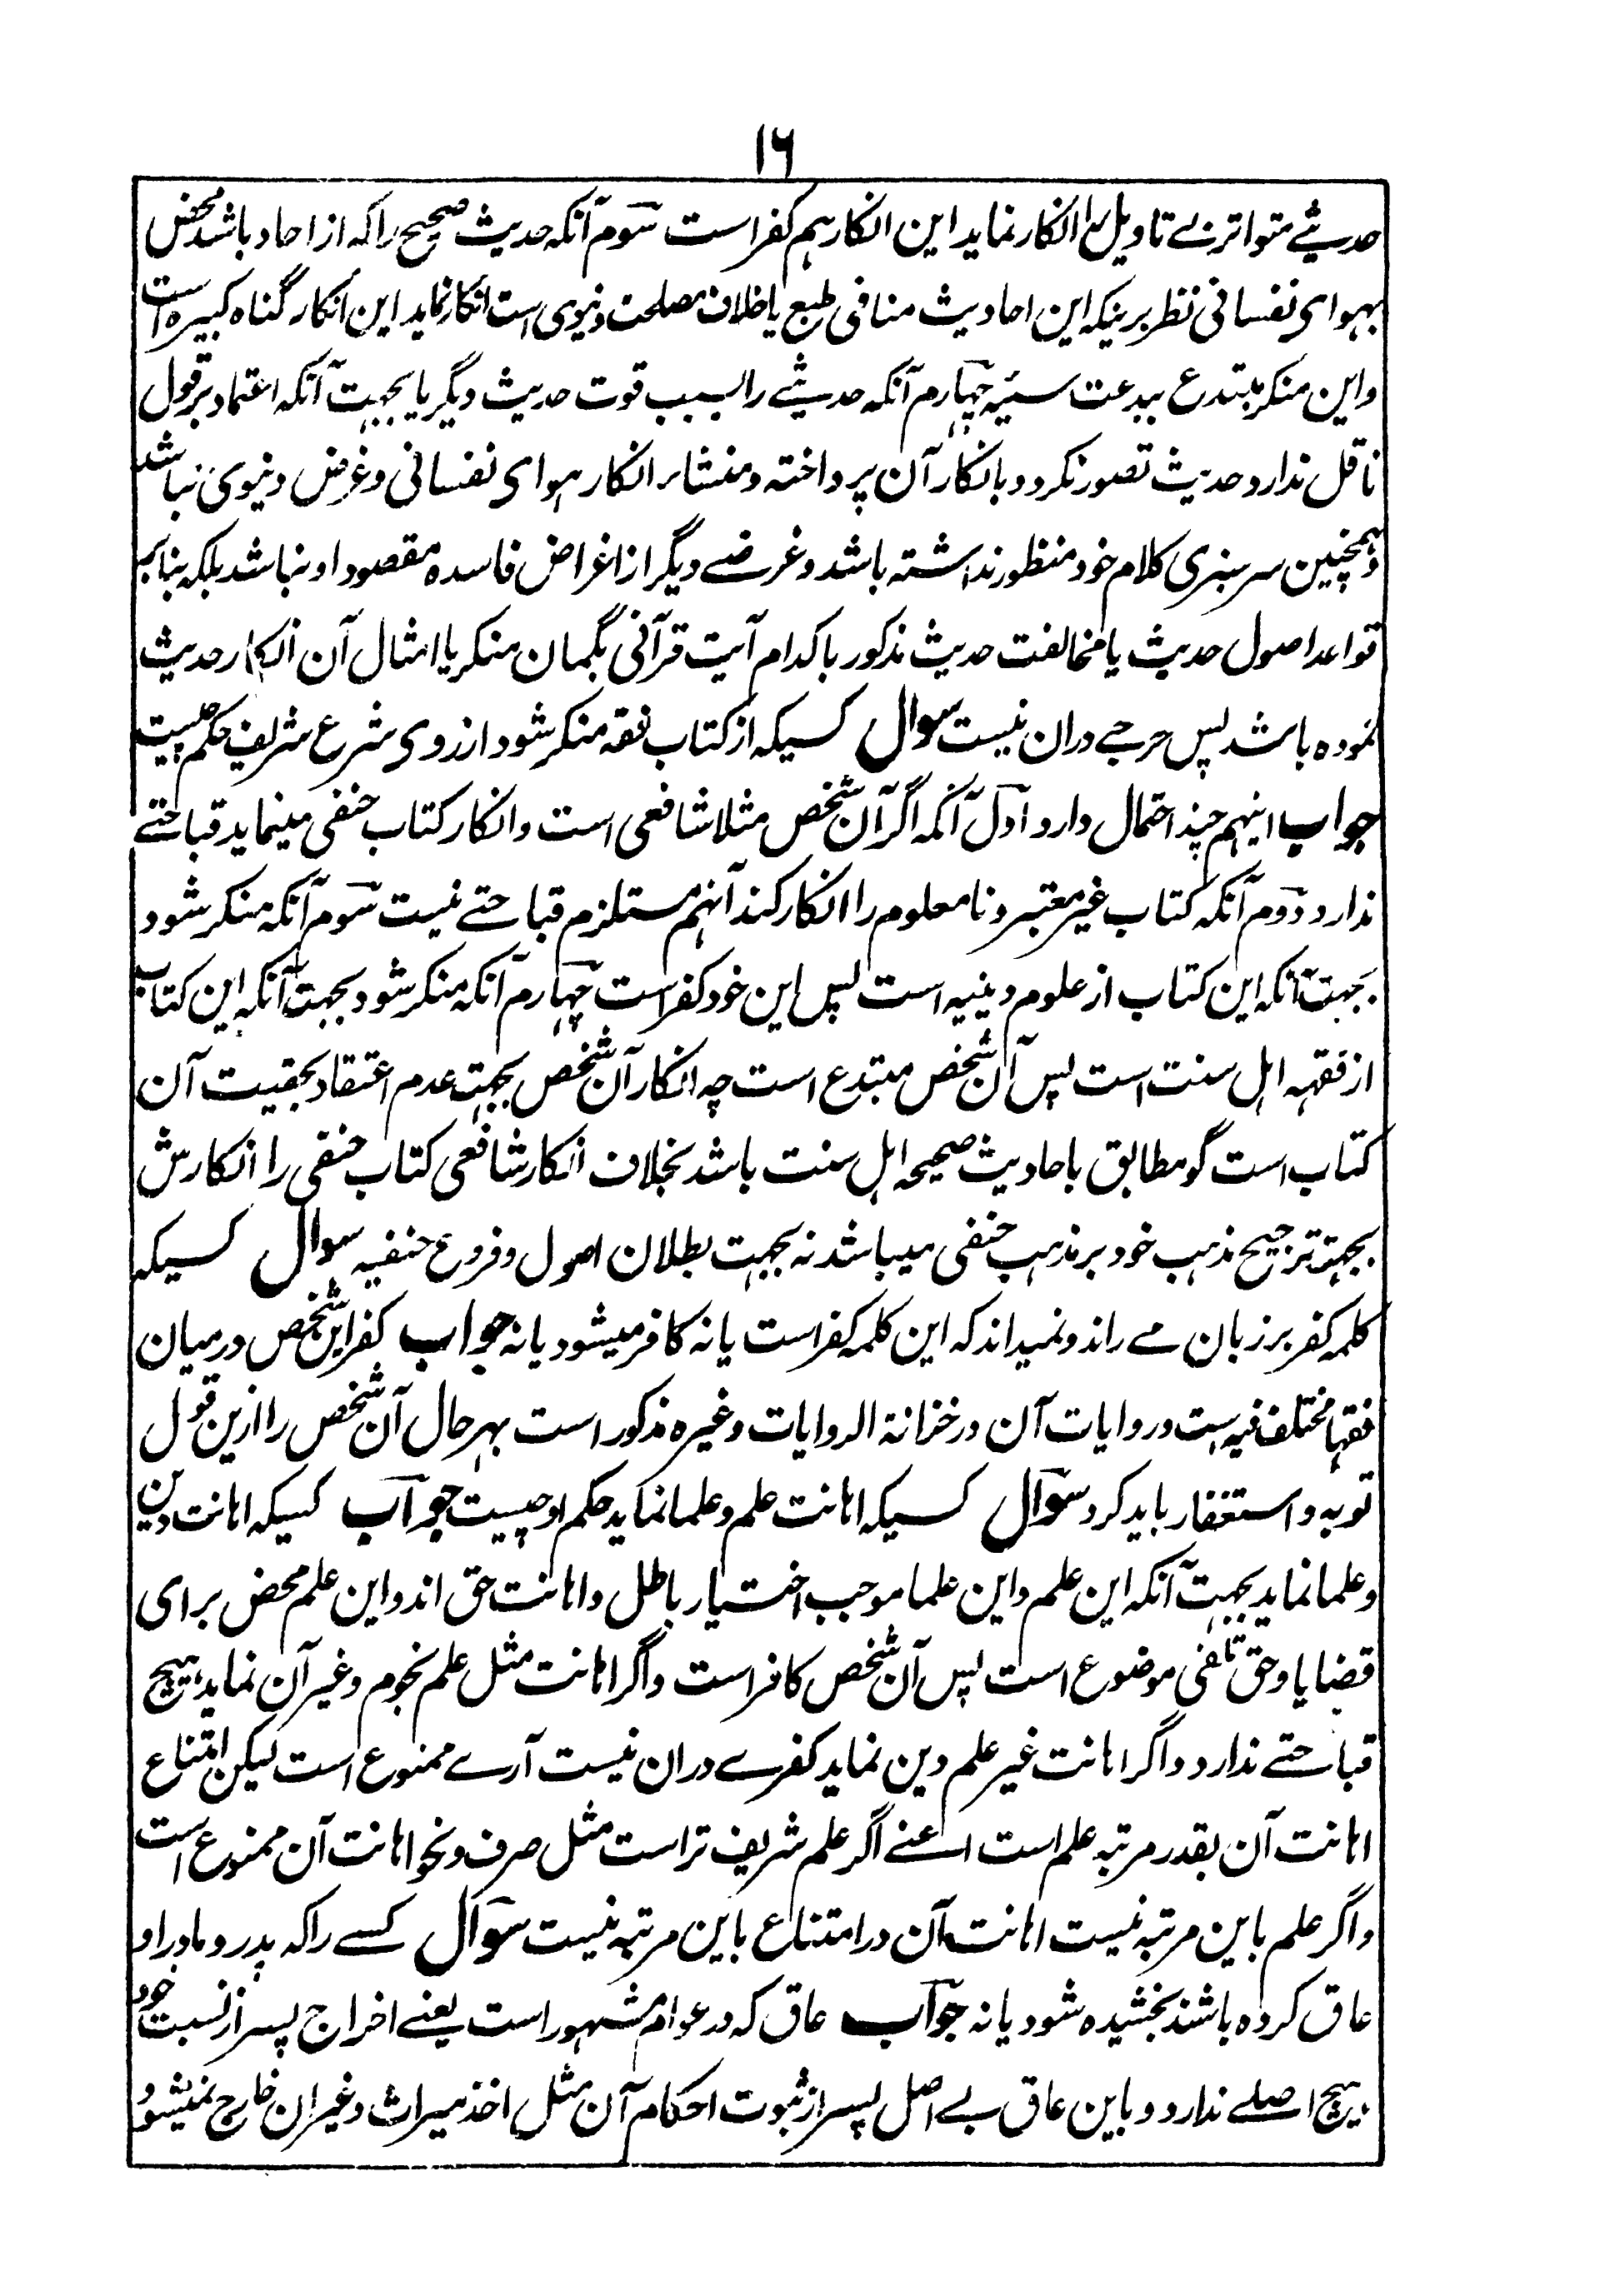 ۱۶
حدیثے متواتر بے تاویل را انکار نماید این انکار هم کفر است سوم آنکه حدیث صحیح را که از احاد باشد محض
بهوای نفسانی نظر برینکه این احادیث منافی طبع یا خلاف مصلحت دنیوی است انکار نماید این انکار گناه کبیره است
و این منکر مبتدع ببدعت سیئه چهارم آنکه حدیثے را بسبب قوت حدیث دیگر یا بجهت آنکه اعتماد بر قول
ناقل ندارد حدیث تصور نکرد و بانکار آن پرداخته و منشاء انکار هوای نفسانی و غرض دنیوی نباشد
و همچنین سرسبزی کلام خود منظور نداشته باشد و غرضے دیگر از اغراض فاسده مقصود او نباشد بلکه بنابر
قواعد اصول حدیث یا مخالفت حدیث مذکور با کدام آیت قرآنی بگمان منکر یا امثال آن انکار حدیث
نموده باشد پس حرجے دران نیست سوال کسیکه از کتاب فقه منکر شود از روی شرع شریف حکم چیست
جواب اینهم چند احتمال دارد اول آنکه اگر آن شخص مثلا شافعی است و انکار کتاب حنفی مینماید قباحتے
ندارد دوم آنکه کتاب غیر معتبر و نا معلوم را انکار کند آنهم مستلزم قباحتے نیست سوم آنکه منکر شود
بجهت آنکه این کتاب از علوم دینیه است پس این خود کفر است چهارم آنکه منکر شود بجهت آنکه این کتاب
از فقهه اهل سنت است پس آن شخص مبتدع است چه انکار آن شخص بجهت عدم اعتقاد بحقیت آن
کتاب است گو مطابق باحادیث صحیحه اهل سنت باشد بخلاف انکار شافعی کتاب حنفی را انکارش
بجهت ترجیح مذهب خود بر مذهب حنفی میباشد نه بجهت بطلان اصول و فروع حنفیه سوال کسیکه
کلمه کفر بر زبان مے راند و نمیداند که این کلمه کفر است یا نه کافر میشود یا نه جواب کفر این شخص در میان
فقها مختلف فیه است و روایات آن در خزانة الروایات و غیره مذکور است بهر حال آن شخص را ازین قول
توبه و استغفار باید کرد سوال کسیکه اهانت علم و علما نماید حکم او چیست جواب کسیکه اهانت دین
و علما نماید بجهت آنکه این علم و این علما موجب اختیار باطل و اهانت حق اند و این علم محض برای
قضایا و حق تلفی موضوع است پس آن شخص کافر است و اگر اهانت مثل علم نجوم و غیر آن نماید هیچ
قباحتے ندارد و اگر اهانت غیر علم دین نماید کفرے دران نیست آرے ممنوع است لیکن امتناع
اهانت آن بقدر مرتبه علم است اعنے اگر علم شریف تر است مثل صرف و نحو اهانت آن ممنوع است
و اگر علم باین مرتبه نیست اهانت آن در امتناع باین مرتبه نیست سوال کسے را که پدر و مادر او
عاق کرده باشند بخشیده شود یا نه جواب عاق که در عوام مشهور است یعنے اخراج پسر از نسبت خود
هیچ اصلے ندارد و باین عاق بے اصل پسر از ثبوت احکام آن مثل اخذ میراث و غیر ان خارج نمیشود